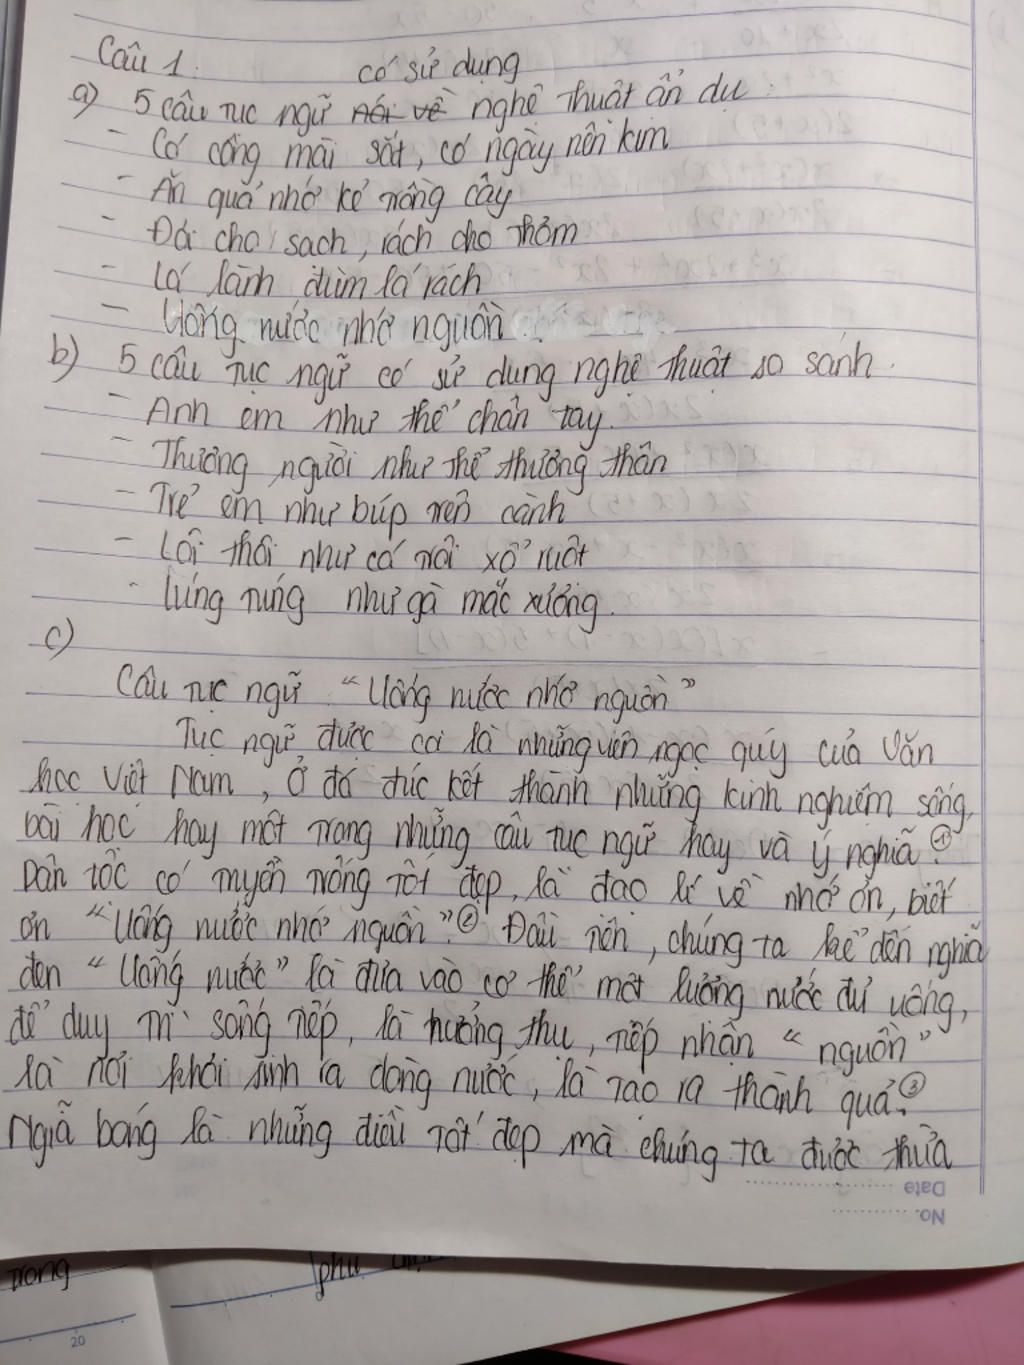 Câu 1:
có sử dụng
a) 5 câu tục ngữ nói về nghệ thuật ẩn dụ :
- Có công mài sắt, có ngày nên kim
- Ăn quả nhớ kẻ trồng cây
- Đói cho sạch, rách cho thơm
- Lá lành đùm lá rách
- Uống nước nhớ nguồn
b) 5 câu tục ngữ có sử dụng nghệ thuật so sánh.
- Anh em như thể chân tay.
- Thương người như thể thương thân
- Trẻ em như búp trên cành
- Lôi thôi như cá trôi xổ ruột
- lúng túng như gà mắc xương.
c)
Câu tục ngữ "Uống nước nhớ nguồn"
Tục ngữ được coi là những viên ngọc quý của Văn
học Việt Nam, Ở đó đúc kết thành những kinh nghiệm sống,
bài học hay một trong những câu tục ngữ hay và ý nghĩa.①
Dân tộc có truyền thống tốt đẹp, là đạo lí về nhớ ơn, biết
ơn "Uống nước nhớ nguồn".② Đầu tiên, chúng ta kể đến nghĩa
đen "Uống nước" là đưa vào cơ thể một lượng nước đủ uống,
để duy trì sống tiếp, là hưởng thụ, tiếp nhận "nguồn"
là nơi khởi sinh ra dòng nước, là tạo ra thành quả.③
Ngiã bóng là những điều tốt đẹp mà chúng ta được thừa
Date
No.
trong
phụ
20